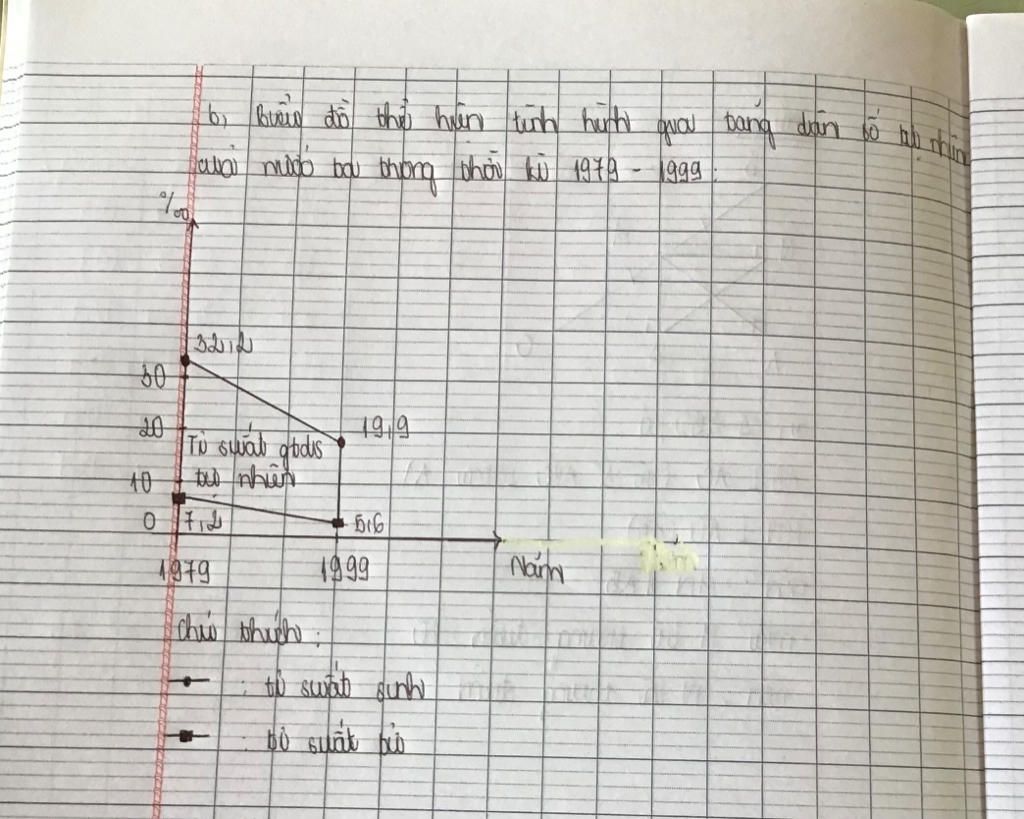 b, Biểu đồ thể hiện tình hình gia tăng dân số tự nhiên
của nước ta trong thời kì 1979 - 1999:
‰
32,2
30
20
19,9
Tỉ suất gtds
10
tự nhiên
0
7,2
5,6
1979
1999
Năm
Chú thích:
: tỉ suất sinh
: tỉ suất tử